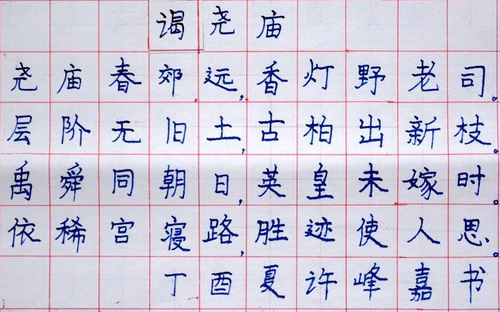 谒尧庙
尧庙春郊远,香灯野老司。
层阶无旧土,古柏出新枝。
禹舜同朝日,英皇未嫁时。
依稀宫寝路,胜迹使人思。
丁酉夏许峰嘉书